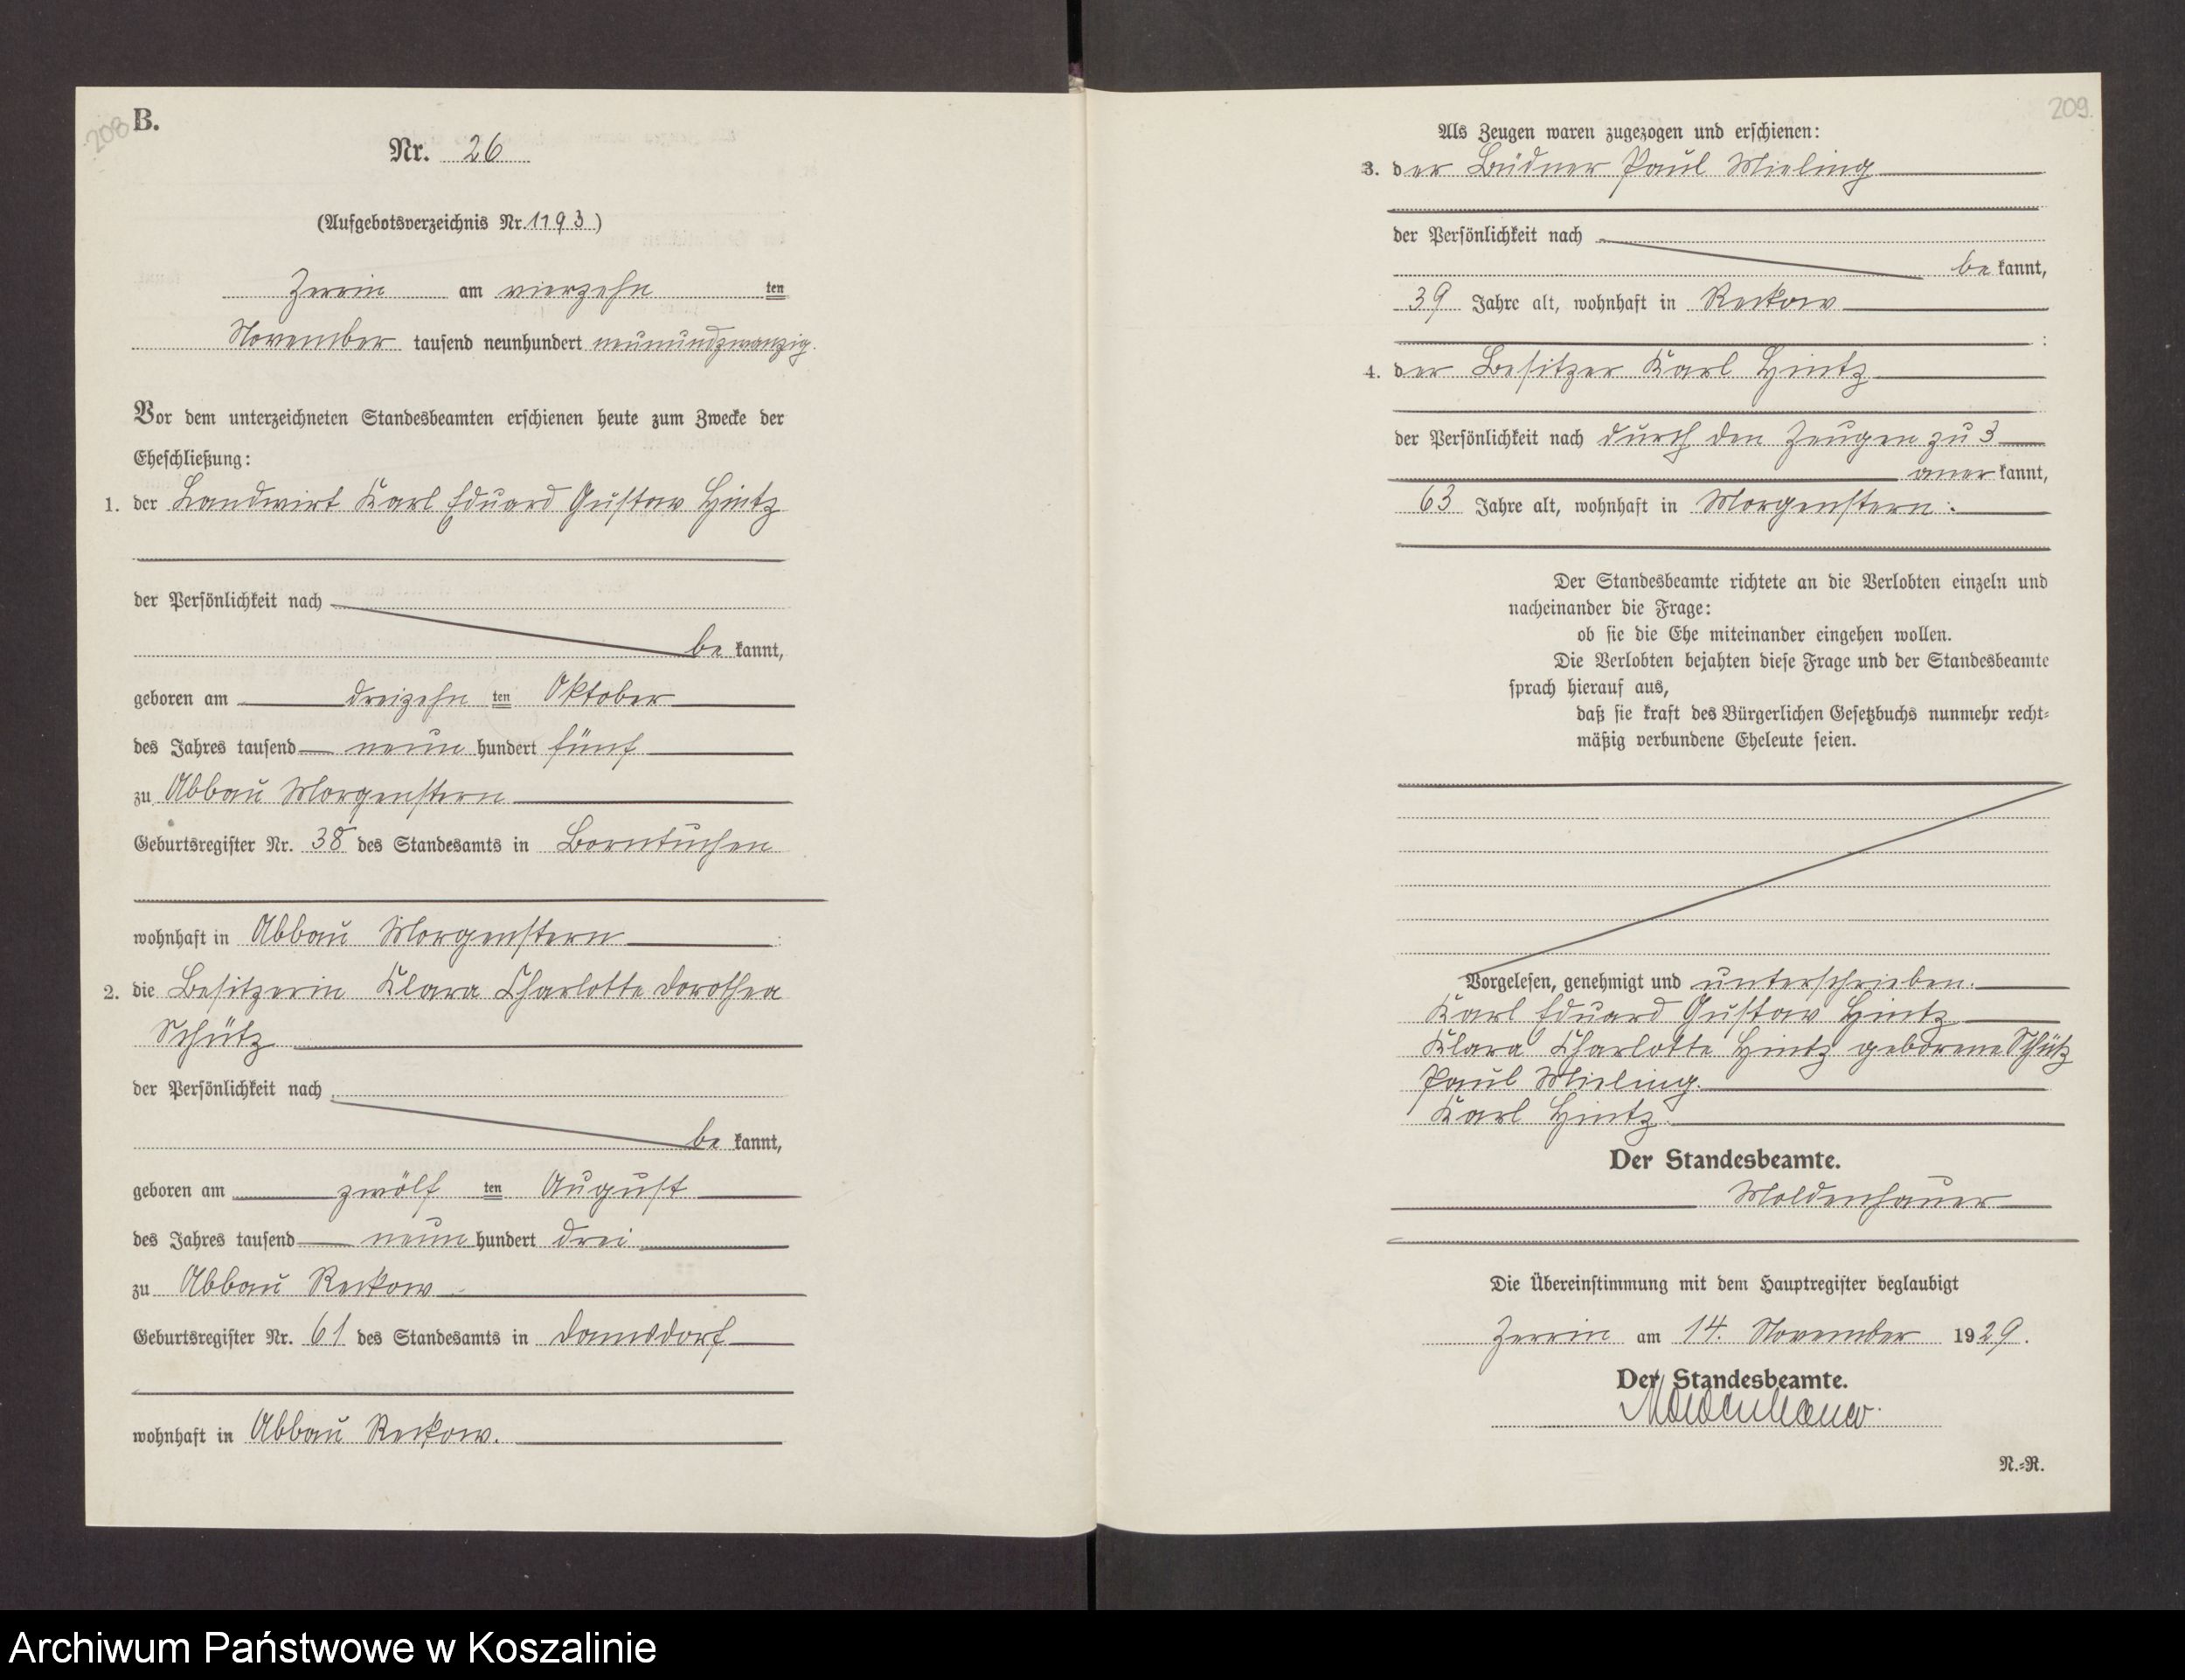 208
B.
Nr. 26
(Aufgebotsverzeichnis Nr. 1193)
Zerrin am vierzehn ten
November tausend neunhundert neunundzwanzig.
Vor dem unterzeichneten Standesbeamten erschienen heute zum Zwecke der
Eheschließung:
1. der Landwirt Karl Eduard Gustav Hintz
der Persönlichkeit nach
be kannt,
geboren am dreizehn ten Oktober
des Jahres tausend neun hundert fünf
zu Abbau Morgenstern
Geburtsregister Nr. 38 des Standesamts in Borntuchen
wohnhaft in Abbau Morgenstern
2. die Besitzerin Klara Charlotte Dorothea
Schütz
der Persönlichkeit nach
be kannt,
geboren am zwölf ten August
des Jahres tausend neun hundert drei
zu Abbau Reckow
Geburtsregister Nr. 61 des Standesamts in Damsdorf
wohnhaft in Abbau Reckow.
209
Als Zeugen waren zugezogen und erschienen:
3. der Büdner Paul Mieling
der Persönlichkeit nach
be kannt,
39 Jahre alt, wohnhaft in Reckow
4. der Besitzer Karl Hintz
der Persönlichkeit nach durch den Zeugen zu 3
aner kannt,
63 Jahre alt, wohnhaft in Morgenstern.
Der Standesbeamte richtete an die Verlobten einzeln und
nacheinander die Frage:
ob sie die Ehe miteinander eingehen wollen.
Die Verlobten bejahten diese Frage und der Standesbeamte
sprach hierauf aus,
daß sie kraft des Bürgerlichen Gesetzbuchs nunmehr recht-
mäßig verbundene Eheleute seien.
Vorgelesen, genehmigt und unterschrieben.
Karl Eduard Gustav Hintz
Klara Charlotte Hintz geborene Schütz
Paul Mieling.
Karl Hintz.
Der Standesbeamte.
Moldenhauer
Die Übereinstimmung mit dem Hauptregister beglaubigt
Zerrin am 14. November 1929.
Der Standesbeamte.
Moldenhauer.
N.-R.
Archiwum Państwowe w Koszalinie